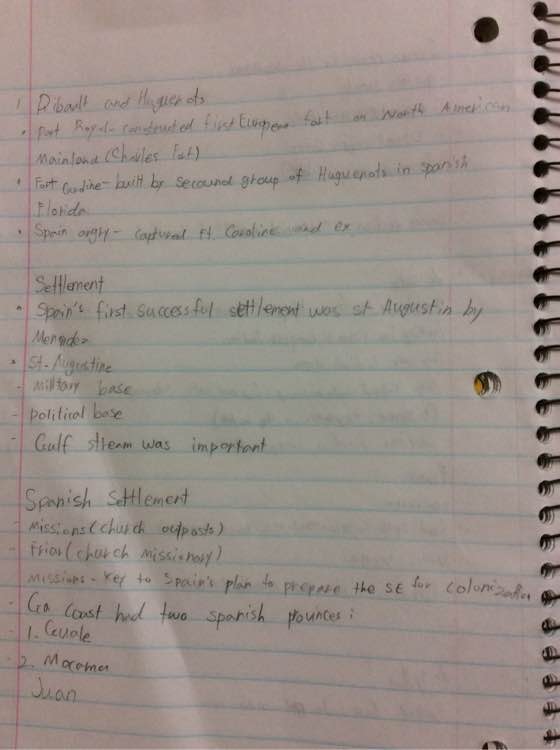 1 Ribault and Huguenots
• Port Royal- constructed first European fort on North American
Mainland (Charles Fort)
• Fort Caroline- built by secound group of Huguenots in spanish
Florida
• Spain angry- captured Ft. Caroline and ex
Settlement
• Spain's first successful settlement was st Augustin by
Menendez
• St-Augustine
- military base
- political base
- Gulf stream was important
Spanish Settlement
- Missions (church outposts)
- Friar (church missionary)
Missions - key to Spain's plan to prepare the SE for colonization
- Ga coast had two spanish prounces:
- 1. Guale
- 2. Mocama
Juan